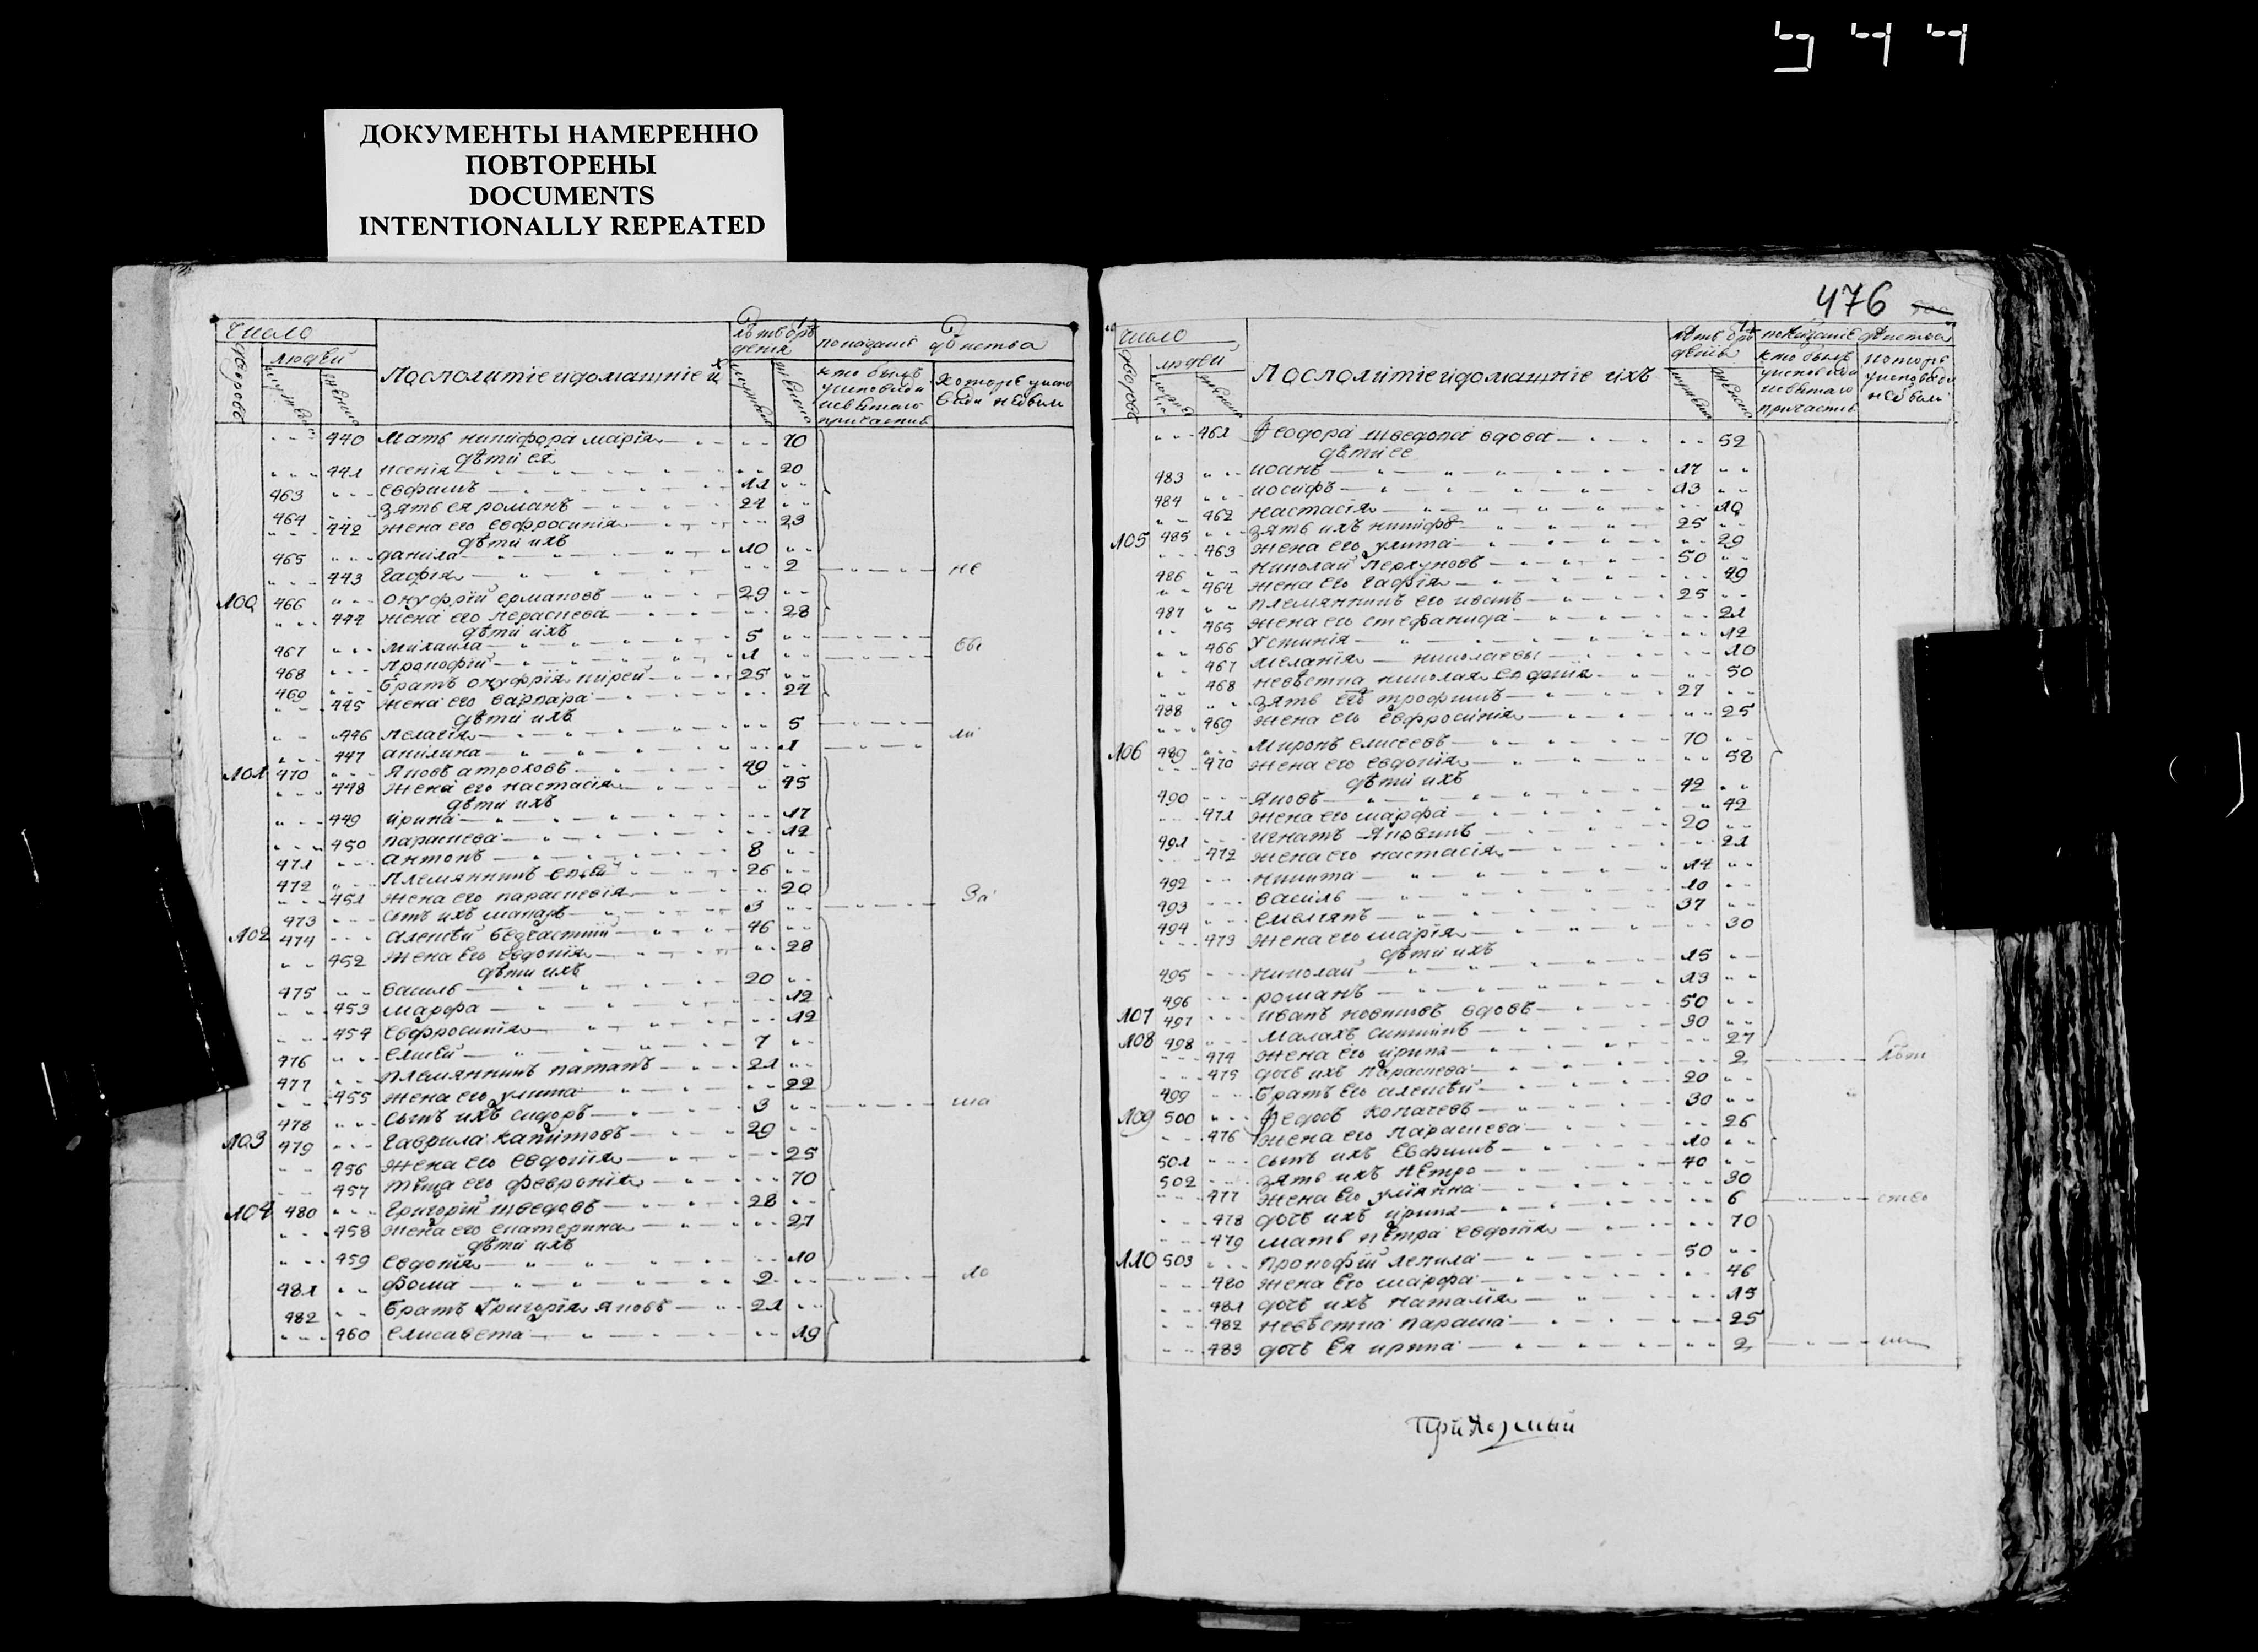 ДОКУМЕНТЫ НАМЕРЕННО
ПОВТОРЕНЫ
DOCUMENTS
INTENTIONALLY REPEATED
476
Число
людей
дворовъ
мужска
женска
Посполитіе и домашніе ихъ
440 Мать никифора марія 70
дѣти ея
441 ксенія 20
463 евфимъ 11
464 зять ея романъ 24
442 жена его евфросинія 23
дѣти ихъ
465 данила 10
443 гафія 2 не
100 466 онуфрій ермаковъ 29
444 жена его параскева 28
дѣти ихъ
467 михаила 5
468 прокофій 1
469 братъ онуфрія кирей 25
445 жена его варвара 24
дѣти ихъ
446 пелагія 5
447 акилина 1
101 470 яковъ атроховъ 49
448 жена его настасія 45
дѣти ихъ
449 ирина 17
450 параскева 12
471 антонъ 8
472 племянникъ 26
451 жена его параскевія 20
473 сынъ ихъ макаръ 3 за
102 474 алексѣй безчастній 46
452 жена его евдокія 28
дѣти ихъ
475 василь 20
453 марфа 12
454 евфросинія 12
476 елисей 7
477 племянникъ патапъ 21
455 жена его улита 22
478 сынъ ихъ сидоръ 3 ма
103 479 гаврила капитовъ 29
456 жена его евдокія 25
457 тѣща его февронія 70
104 480 григорій шведовъ 28
458 жена его екатерина 27
дѣти ихъ
459 евдокія 10
481 фома 2 ло
482 братъ григорія яковъ 21
460 елисавета 19
Число
людей
дворовъ
Посполитіе и домашніе ихъ
461 Феодора шведова вдова 52
дѣти ее
483 иоанъ 17
484 иосифъ 13
462 настасія 10
485 зять ихъ никифо 25
463 жена его улита 29
105 486 николай перхуновъ 50
464 жена его гафія 49
487 племянникъ его 25
465 жена его стефанида 21
466 устинія 12
467 меланія николаевы 10
468 невѣстка николая 50
488 зять его трофимъ 27
469 жена его евфросинія 25
106 489 Миронъ елисеевъ 70
470 жена его евдокія 58
дѣти ихъ
490 яковъ 42
471 жена его марфа 42
491 игнатъ яковинъ 20
472 жена его настасія 21
492 никита 14
493 василь 10
494 емелянъ 37
473 жена его марія 30
дѣти ихъ
495 николай 15
496 романъ 13
107 497 иванъ новиковъ вдовъ 50
108 498 малахъ 30
474 жена его ирина 27
475 дочь ихъ параскева 2 лѣт
499 братъ его алексѣй 20
109 500 Федосъ копачевъ 30
476 жена его параскева 26
501 сынъ ихъ евфимъ 10
502 зять ихъ петро 40
477 жена его улїянна 30
478 дочь ихъ ирина 6 ство
479 мать петра евдокія 70
110 503 прокофій лепила 50
480 жена его марфа 46
481 дочь ихъ наталія 15
482 невѣстка параска 25
483 дочь ея ирина 2